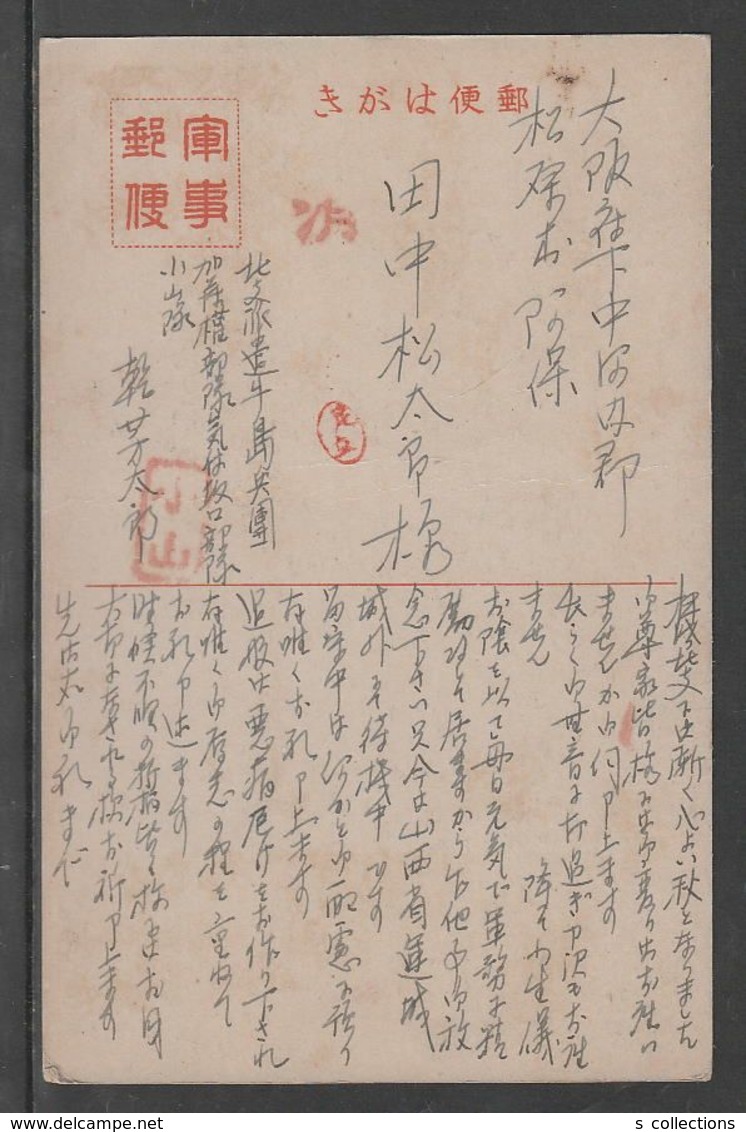 郵便はがき
軍事郵便
大阪府下中河内郡
松原村阿保
田中松太郎様
北支派遣牛島兵團
加藤權部隊気付坂口部隊
小山隊
乾芳太郎
北支では漸く心よい秋となりました
御尊家皆様には御変り御座い
ませんか御伺申上ます
長らく御無音に打過ぎ申訳も御座
ません 降て小生儀
お陰を以て毎日元気で軍務に精
励致して居ますから乍他事御放
念下さい只今は山西省運城
城外にて待機中です
留守中は何かと御配慮に預り
有難くお礼申上ます
追報は悪病厄けをお作り下され
有難く御厚志の程を重ねて
お礼申述ます
時候不順の折柄皆々様にはお身
大切になされる様お祈申上ます
先は右御礼まで
s collections